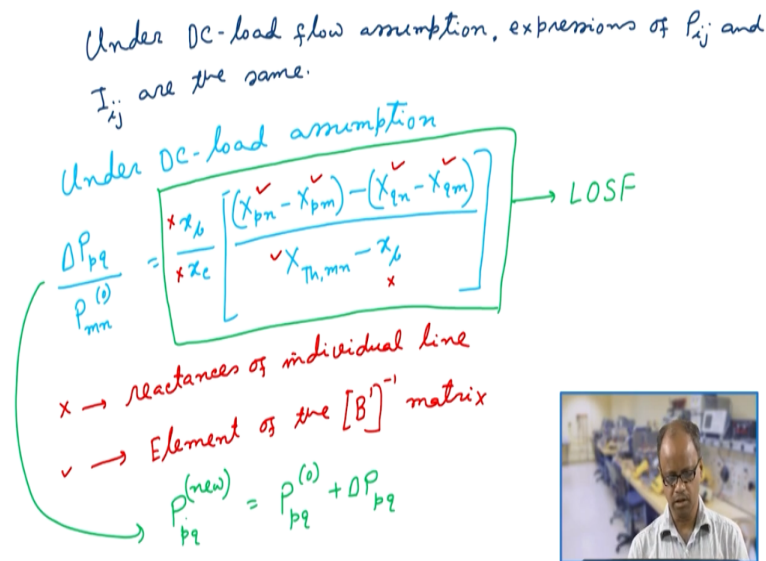 Under DC-load flow assumption, expressions of P_ij and
I_ij are the same.
Under DC-load assumption
ΔP_pq / P_mn^(0) = x_b / x_c [ ((X_pn - X_pm) - (X_qn - X_qm)) / (X_Th,mn - x_b) ] → LOSF
x → reactances of individual line
✓ → Element of the [B']^-1 matrix
P_pq^(new) = P_pq^(0) + ΔP_pq